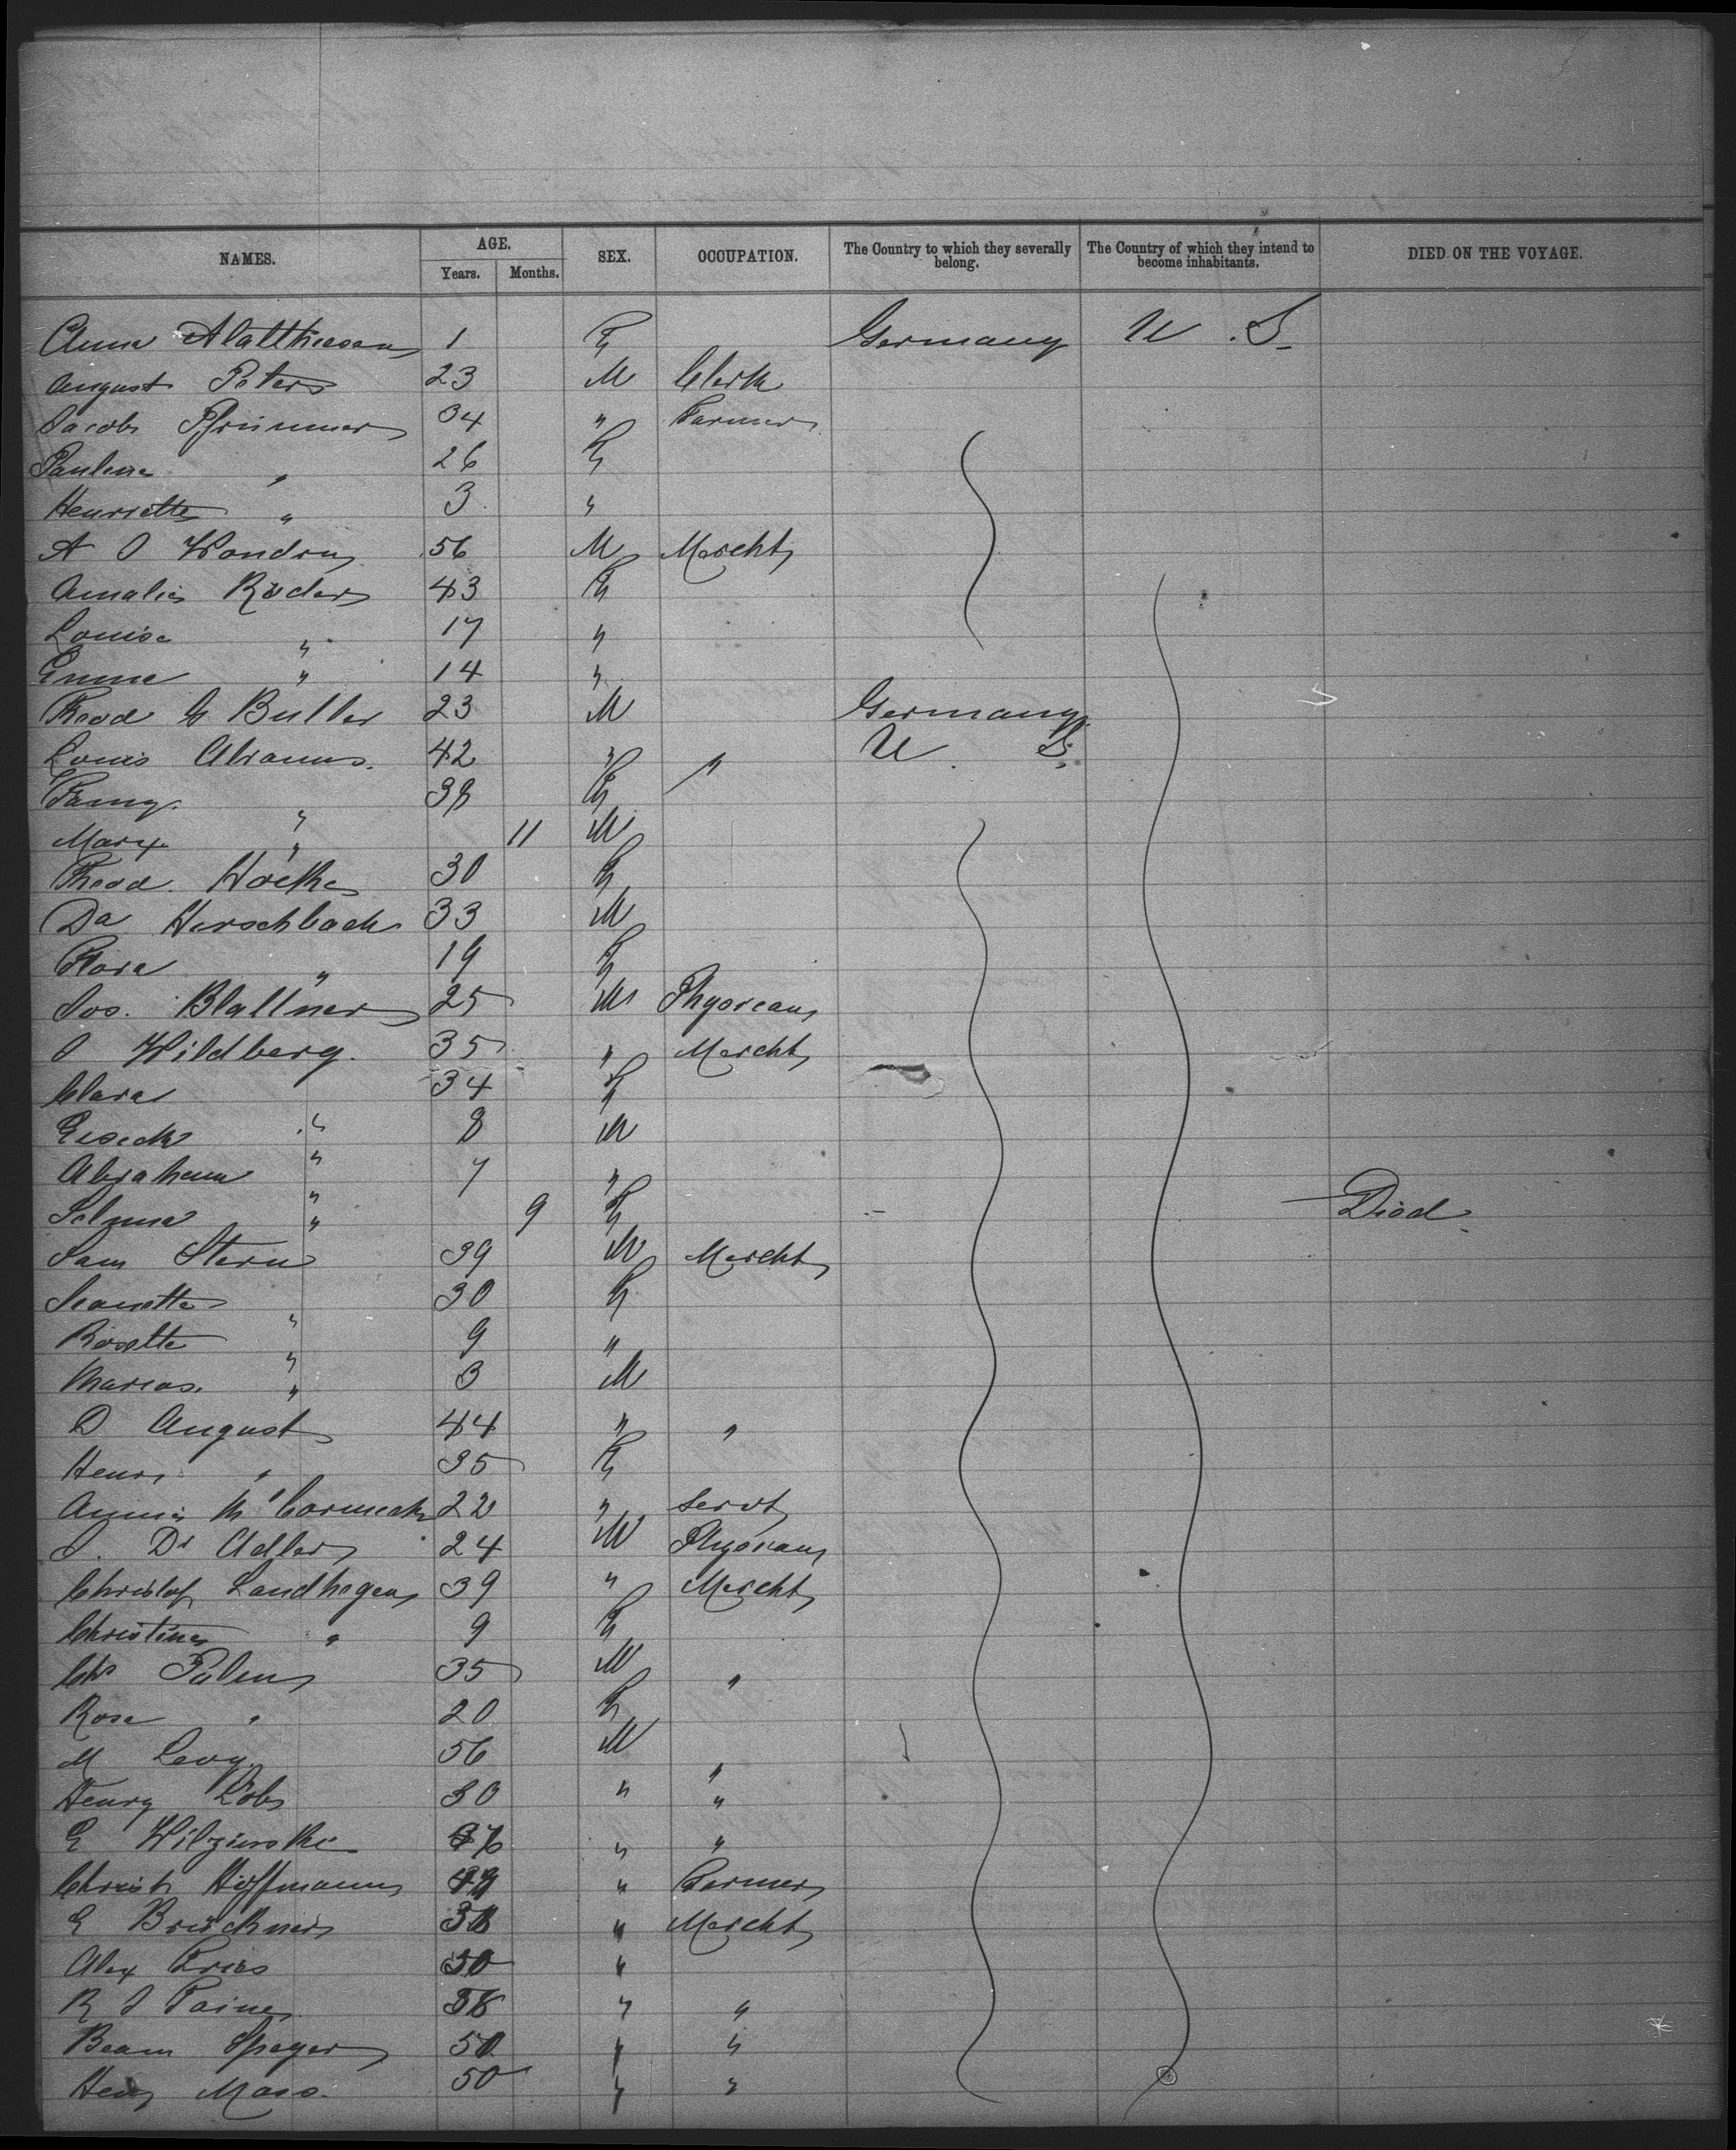 NAMES. AGE. Years. Months. SEX. OCCUPATION. The Country to which they severally belong. The Country of which they intend to become inhabitants. DIED ON THE VOYAGE.
Anna Matthiesen 1 F Germany U.S.
August Peters 23 M Clerk
Jacob Pfrimmer 34 " Farmer
Paulina " 26 F
Henriette " 3 "
A J 56 M Mercht
Amalia Röder 43 F
Louise " 17 "
Emma " 14 "
Theod G Butler 23 M Germany
Louis Abrams. 42 " " U S.
Fanny " 38 F
Marx " 11 M
Theod. Hoelke 30 F
Da Herschbach 33 M
Flora " 19 F
Jos. Blattner 25 M Physician
J Wildberg. 35 " Mercht
Clara " 34 F
Eisick " 8 M
Abraham " 7 "
Selma " 9 F Died
Sam Stern 39 M Mercht
Jeanette " 30 F
Rosette " 9 "
Marcus. " 3 M
D August 44 " "
Henr. " 35 F
Annie McCormack 22 " Servt
J. Dr Adler 24 M Physician
Christof Landhagen 39 " Mercht
Christine " 9 F
Chs Palm 35 M "
Rosa " 20 F
M Levy 56 M "
Henry Löb 30 " "
E Wilzinski " "
Christ Hoffmann " Farmer
E Brückner " Mercht
Alex Fries 50 "
R J Paine " "
Beam Speyer 50 " "
Henry Maas. 50 " "